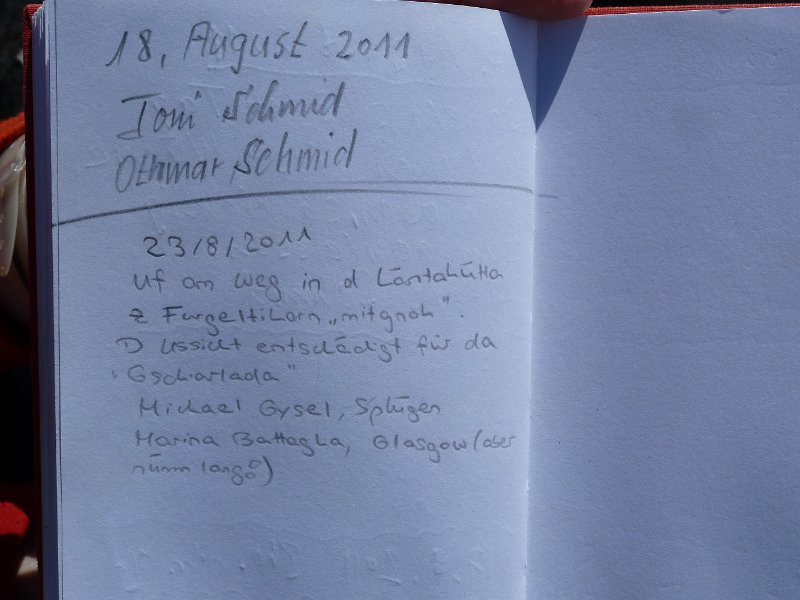 18, August 2011
Toni Schmid
Othmar Schmid
23/8/2011
Uf am Weg in d Läntahütta
z Furgeltihorn „mitgnoh".
D Ussicht entschädigt für da
"Gscharlada"
Michael Gysel, Splügen
Marina Battaglia, Glasgow (aber
nümm lang)